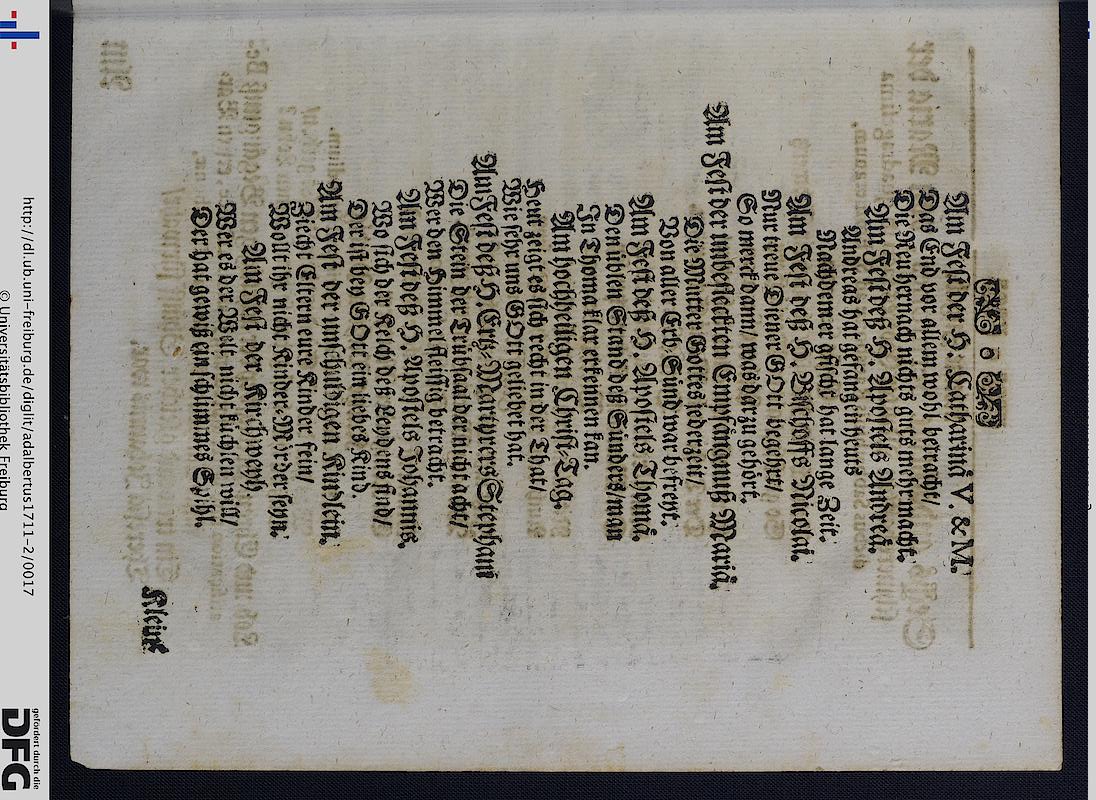 Am Fest der H. Catharinä V. & M.
Das End vor allem wohl betracht/
Die Reu hernach nichts guts mehr macht.
Am Fest deß H. Apostels Andreä.
Andreas hat gefangen uns
Nachdem er gfischt hat lange Zeit.
Am Fest deß H. Bischoffs Nicolai.
Nur treue Diener GOtt begehrt/
So merck dann/ was darzu gehört.
Am Fest der unbefleckten Empfängnuß Mariä.
Die Mutter Gottes jederzeit/
Von aller Erb-Sünd war befreyt.
Am Fest deß H. Apostels Thomä.
Den üblen Stand deß Sünders/ man
In Thoma klar erkennen kan.
Am Hochheiligen Christ-Tag.
Heut zeigt es sich recht in der That/
Wie sehr uns GOtt geliebet hat.
Am Fest deß H. Ertz-Martyrers Stephani
Die Stein der Trübsaal der nicht acht/
Wer den Himmel fleissig betracht.
Am Fest deß H. Apostels Johannis.
Wo sich der Kelch deß Leydens find/
Der ist bey GOtt ein liebes Kind.
Am Fest der unschuldigen Kindlein.
Recht Eltern eure Kinder seyn/
Wollt ihr nicht Kinder-Mörder seyn.
Am Fest der Kirchweyh.
Wer es der Welt nicht küchlen will/
Der hat gewiß ein schlimmes Spihl.
Kleine
http://dl.ub.uni-freiburg.de/diglit/adalbertus1711-2/0017
© Universitätsbibliothek Freiburg
gefördert durch die
DFG